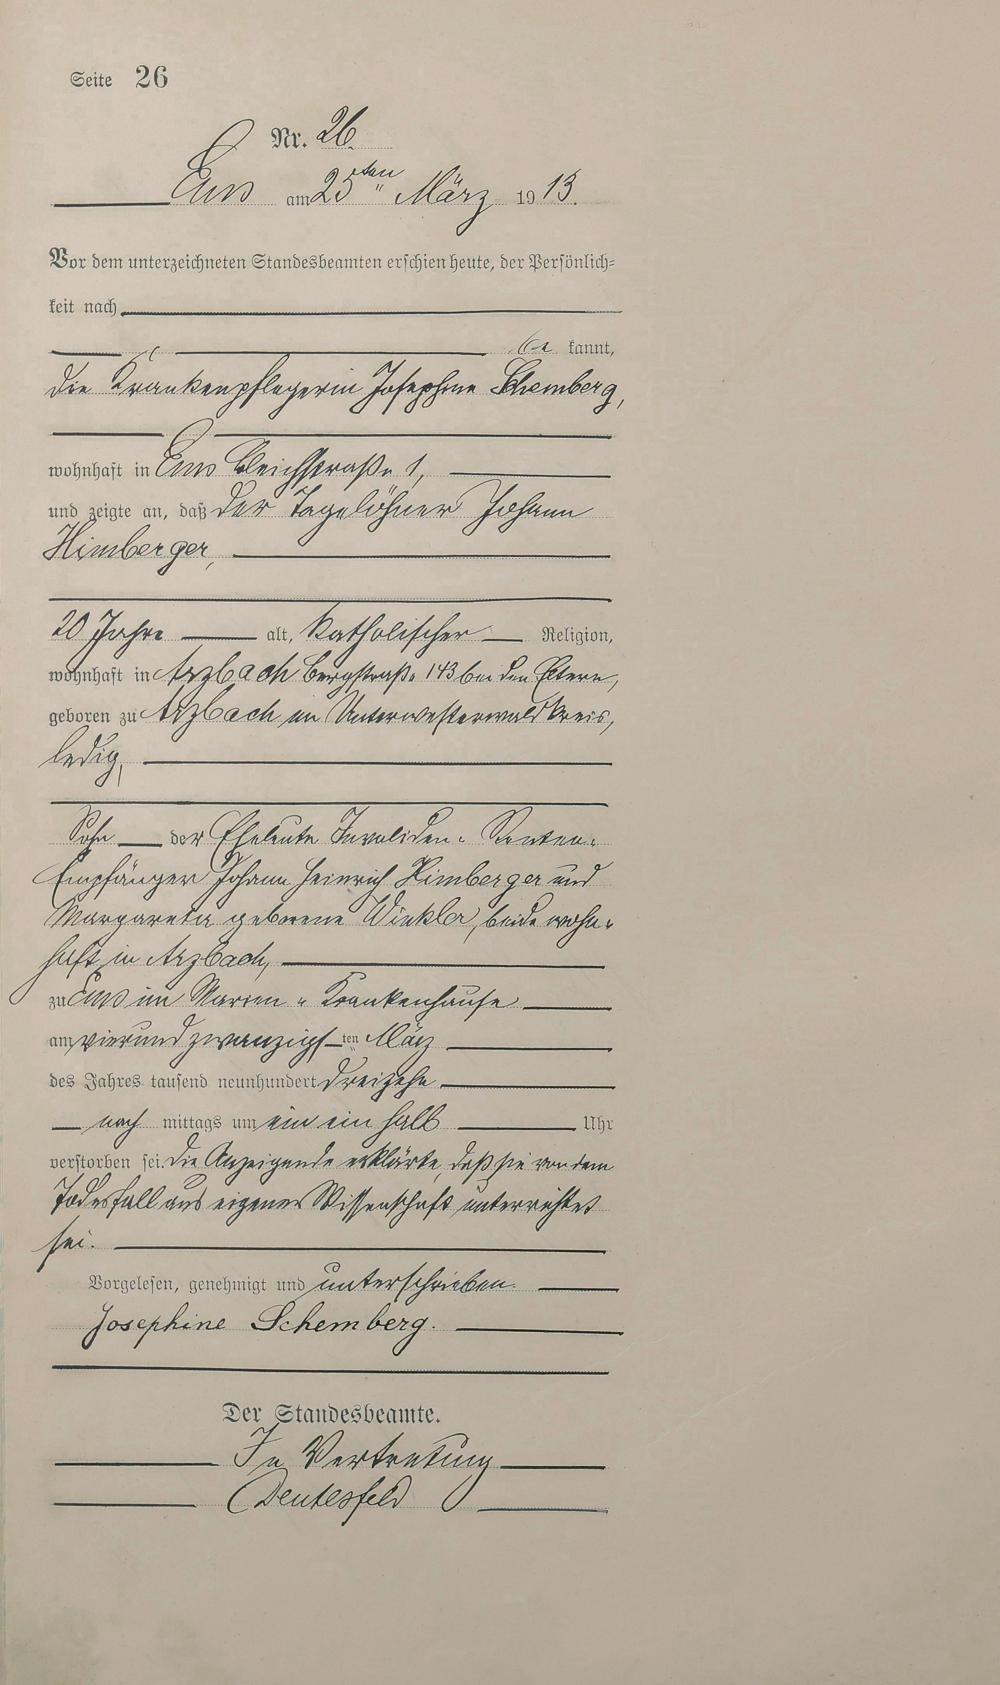 Seite 26
Nr. 26.
Ems am 25ten März 1913.
Vor dem unterzeichneten Standesbeamten erschien heute, der Persönlich-
keit nach
be kannt,
die Krankenpflegerin Josephine Schemberg,
wohnhaft in Ems Bleichstraße 1,
und zeigte an, daß der Tagelöhner Johann
Himberger,
20 Jahre alt, Katholischer Religion,
wohnhaft in Arzbach Bergstraße 143 bei den Eltern,
geboren zu Arzbach im Unterwesterwaldkreis,
ledig,
Sohn der Eheleute Invaliden- Renten-
Empfänger Johann Heinrich Himberger und
Margareta geborene Winkler, beide wohn-
haft in Arzbach,
zu Ems im Marien-Krankenhause
am vierundzwanzigsten März
des Jahres tausend neunhundert dreizehn
nach mittags um ein ein halb Uhr
verstorben sei. Die Anzeigende erklärte, daß sie von dem
Todesfall aus eigener Wissenschaft unterrichtet
sei.
Vorgelesen, genehmigt und unterschrieben.
Josephine Schemberg.
Der Standesbeamte.
In Vertretung
Deutesfeld